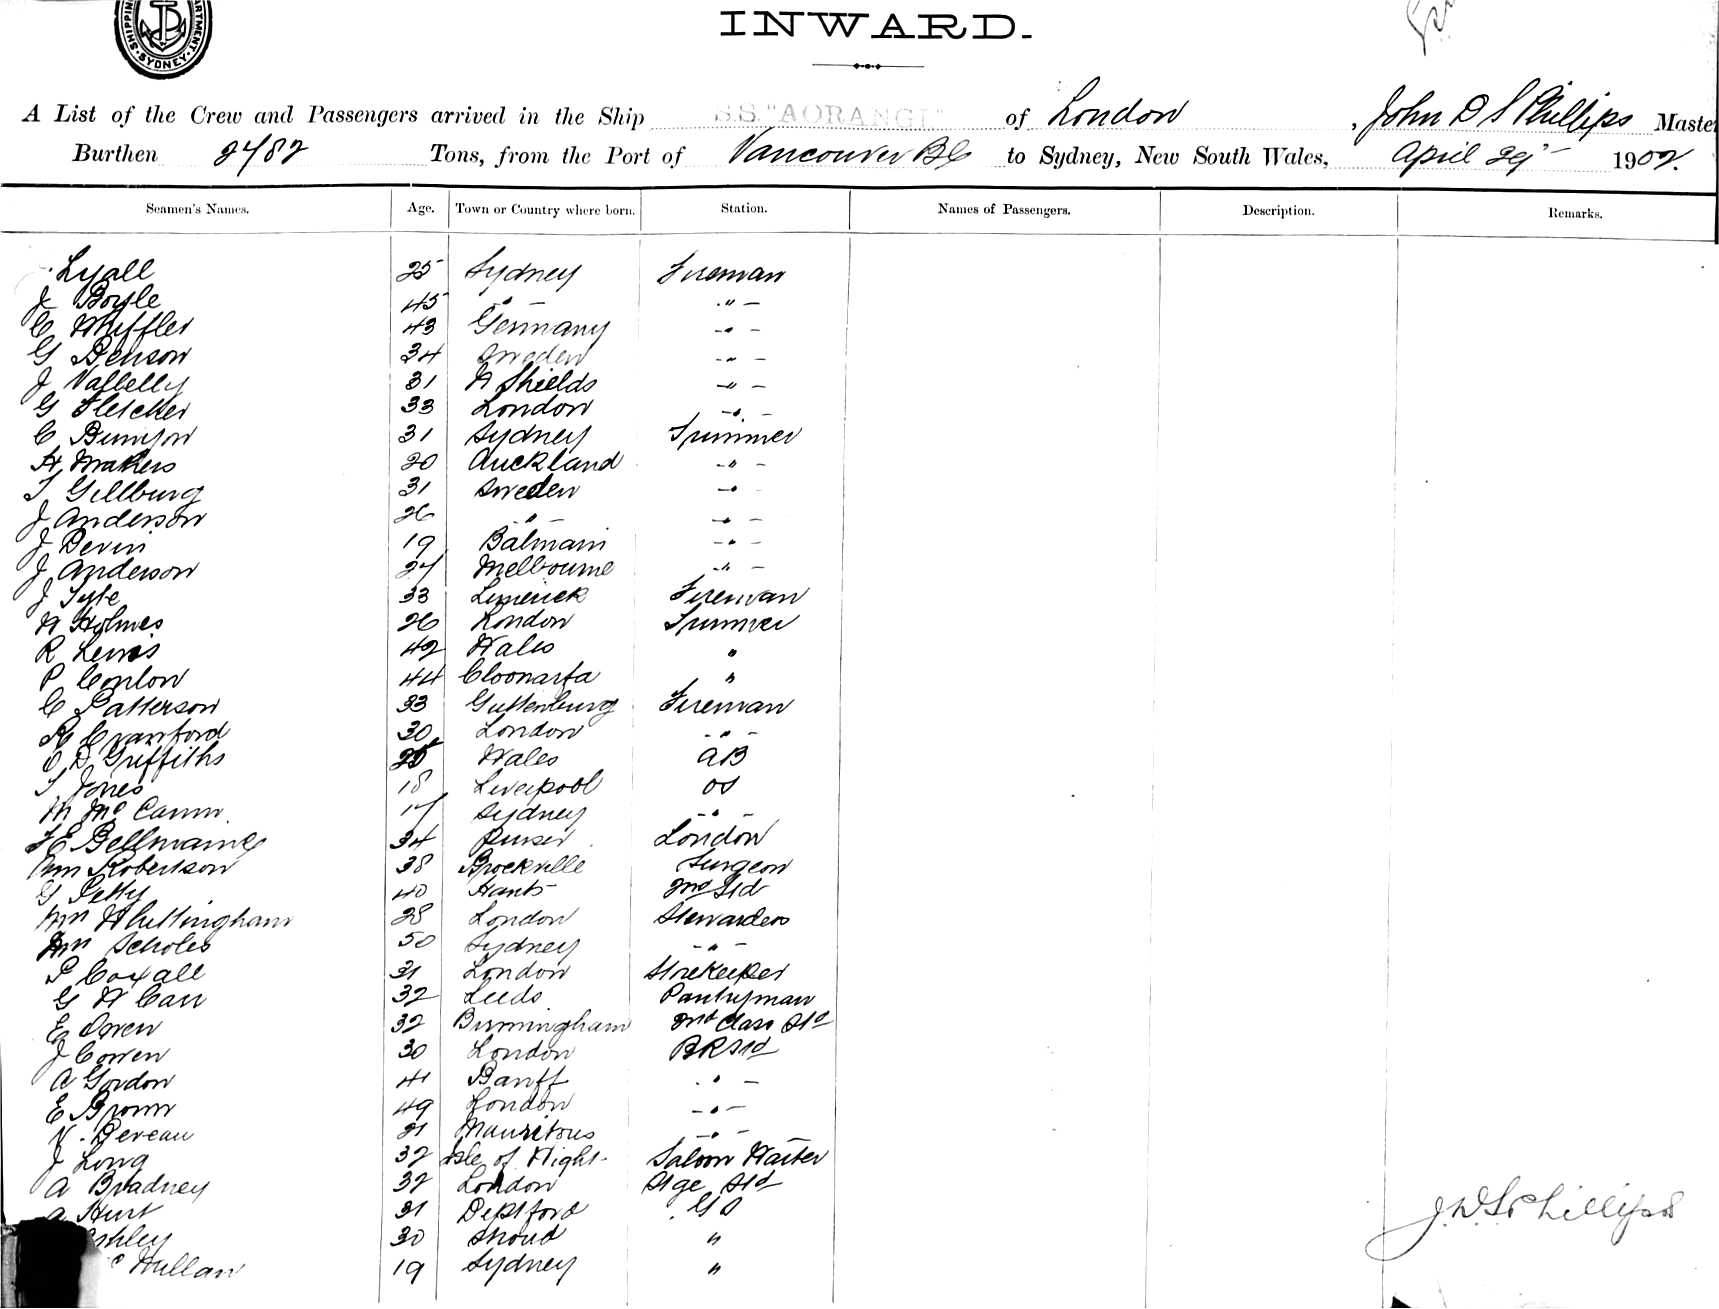 SHIPPING DEPARTMENT · SYDNEY
INWARD.
A List of the Crew and Passengers arrived in the Ship S.S. "AORANGI" of London, John D S Phillips Master
Burthen 2782 Tons, from the Port of Vancouver BC to Sydney, New South Wales, April 29 1902.
Seamen's Names. Age. Town or Country where born. Station. Names of Passengers. Description. Remarks.
Lyall 25 Sydney Fireman
J Boyle 45 " "
C 43 Germany "
G Benson 34 Sweden "
J Vallelly 31 N Shields "
G Fletcher 33 London "
C Bunyon 31 Sydney Trimmer
H Makers 20 Auckland "
T Gillburg 31 Sweden "
J Anderson 26 " "
J Devin 19 Balmain "
J Anderson 27 Melbourne "
J 33 Limerick Fireman
W Holmes 26 London Trimmer
R Lewis 42 Wales "
P Conlon 44 "
C Patterson 33 Guttenburg Fireman
Crawford 30 London "
D Griffiths 25 Wales AB
T Jones 18 Liverpool OS
M McCann 17 Sydney "
F E Bellmaine 34 Purser London
Wm Robertson 38 Brockville Surgeon
G Petty 40 Hants 2nd Std
Whittingham 28 London Stewardess
Scholes 50 Sydney "
P Coxall 31 London Storekeeper
G W Carr 32 Leeds Pantryman
E Owen 32 Birmingham 2nd Class Std
J Cowen 30 London BR Std
A Gordon 41 Banff "
E Brown 49 London "
V. Dereau 21 Mauritous "
J Long 32 Isle of Wight Saloon Waiter
A Bradney 32 London Stge Std
A Hurt 31 Deptford GS
shley 30 Stroud "
c Millan 19 Sydney "
J D S Phillips